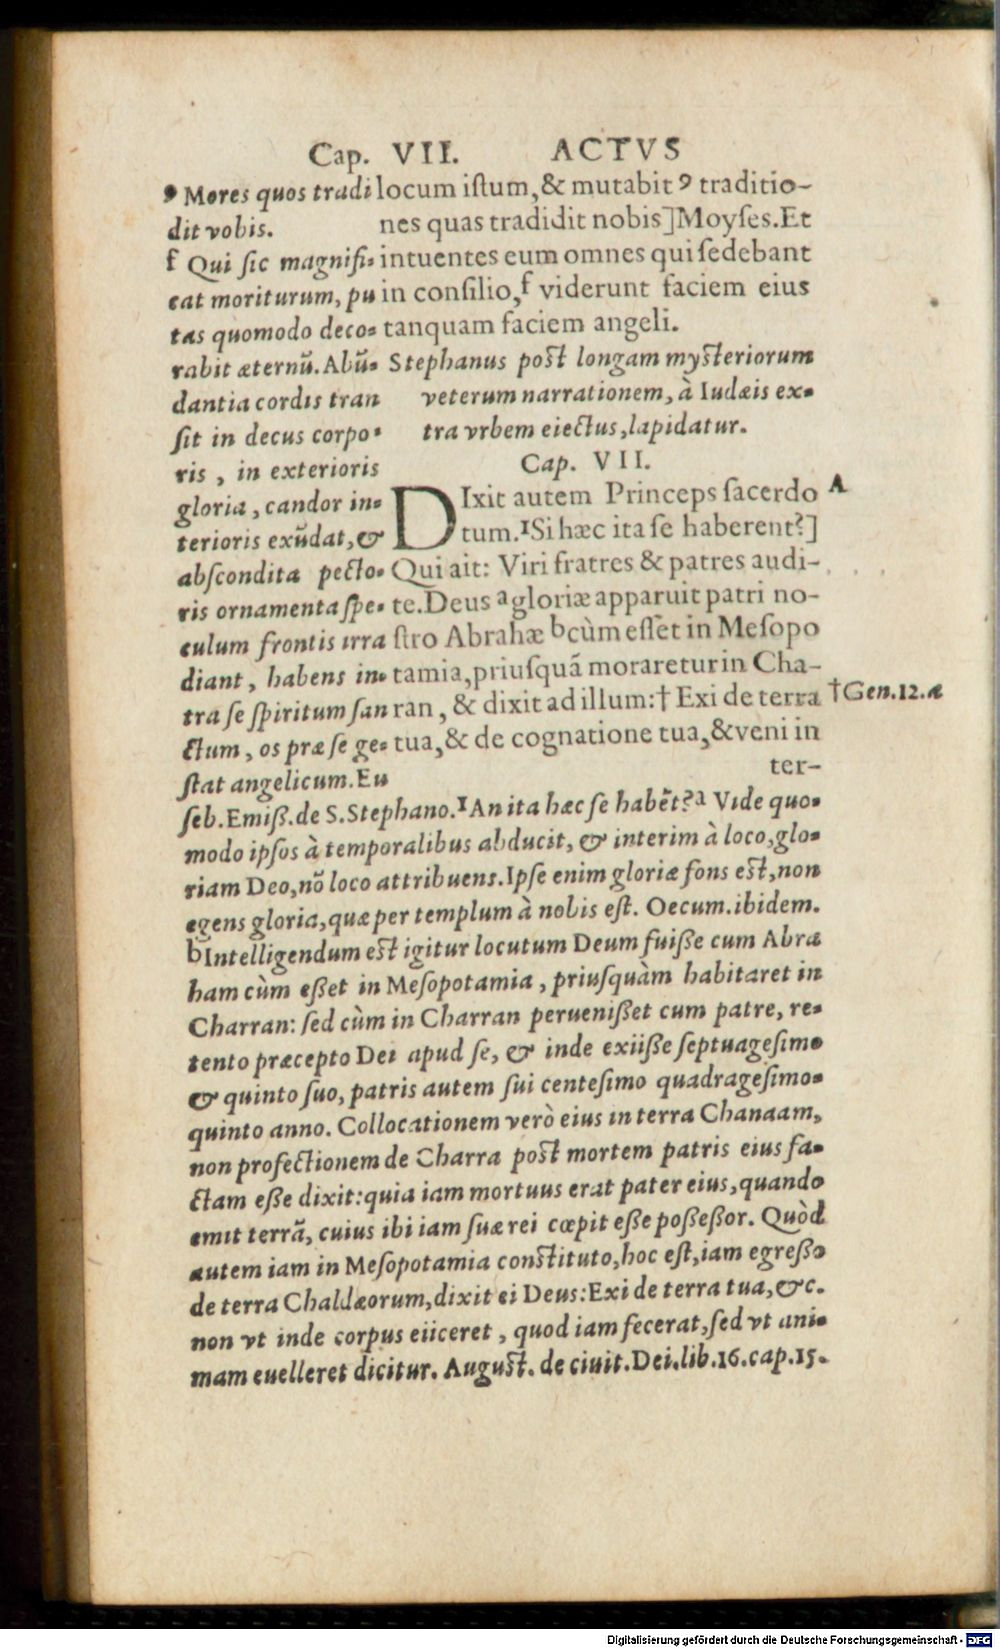 Cap. VII. ACTVS
locum iſtum, & mutabit ⁹ traditio-
nes quas tradidit nobis] Moyſes. Et
intuentes eum omnes qui ſedebant
in conſilio, ᶠ viderunt faciem eius
tanquam faciem angeli.
Stephanus poſt longam myſteriorum
veterum narrationem, à Iudæis ex-
tra vrbem eiectus, lapidatur.
Cap. VII.
DIxit autem Princeps ſacerdo
tum. ¹Si hæc ita ſe haberent?]
Qui ait: Viri fratres & patres audi-
te. Deus ᵃ gloriæ apparuit patri no-
ſtro Abrahæ ᵇ cùm eſſet in Meſopo
tamia, priuſquã moraretur in Cha-
ran, & dixit ad illum: † Exi de terra
tua, & de cognatione tua, & veni in
ter-
A
† Gen. 12. a
⁹ Mores quos tradi
dit vobis.
f Qui ſic magnifi-
cat moriturum, pu
tas quomodo deco-
rabit æternũ. Abũ-
dantia cordis tran
ſit in decus corpo-
ris, in exterioris
gloria, candor in-
terioris exũdat, &
abſcondita pecto-
ris ornamenta ſpe-
culum frontis irra
diant, habens in-
tra ſe ſpiritum ſan
ctum, os præ ſe ge-
ſtat angelicum. Eu
ſeb. Emiß. de S. Stephano. ¹ An ita hæc ſe habẽt? ᵃ Vide quo-
modo ipſos à temporalibus abducit, & interim à loco, glo-
riam Deo, nõ loco attribuens. Ipſe enim gloriæ fons eſt, non
egens gloria, quæ per templum à nobis eſt. Oecum. ibidem.
ᵇ Intelligendum eſt igitur locutum Deum fuiße cum Abra
ham cùm eßet in Meſopotamia, priuſquàm habitaret in
Charran: ſed cùm in Charran perueniſßet cum patre, re-
tento præcepto Dei apud ſe, & inde exiiße ſeptuageſimo
& quinto ſuo, patris autem ſui centeſimo quadrageſimo-
quinto anno. Collocationem verò eius in terra Chanaam,
non profectionem de Charra poſt mortem patris eius fa-
ctam eße dixit: quia iam mortuus erat pater eius, quando
emit terrã, cuius ibi iam ſuæ rei cœpit eße poßeßor. Quòd
autem iam in Meſopotamia conſtituto, hoc eſt, iam egreßo
de terra Chaldæorum, dixit ei Deus: Exi de terra tua, &c.
non vt inde corpus eiiceret, quod iam fecerat, ſed vt ani-
mam euelleret dicitur. Auguſt. de ciuit. Dei. lib. 16. cap. 15.
Digitalisierung gefördert durch die Deutsche Forschungsgemeinschaft - DFG